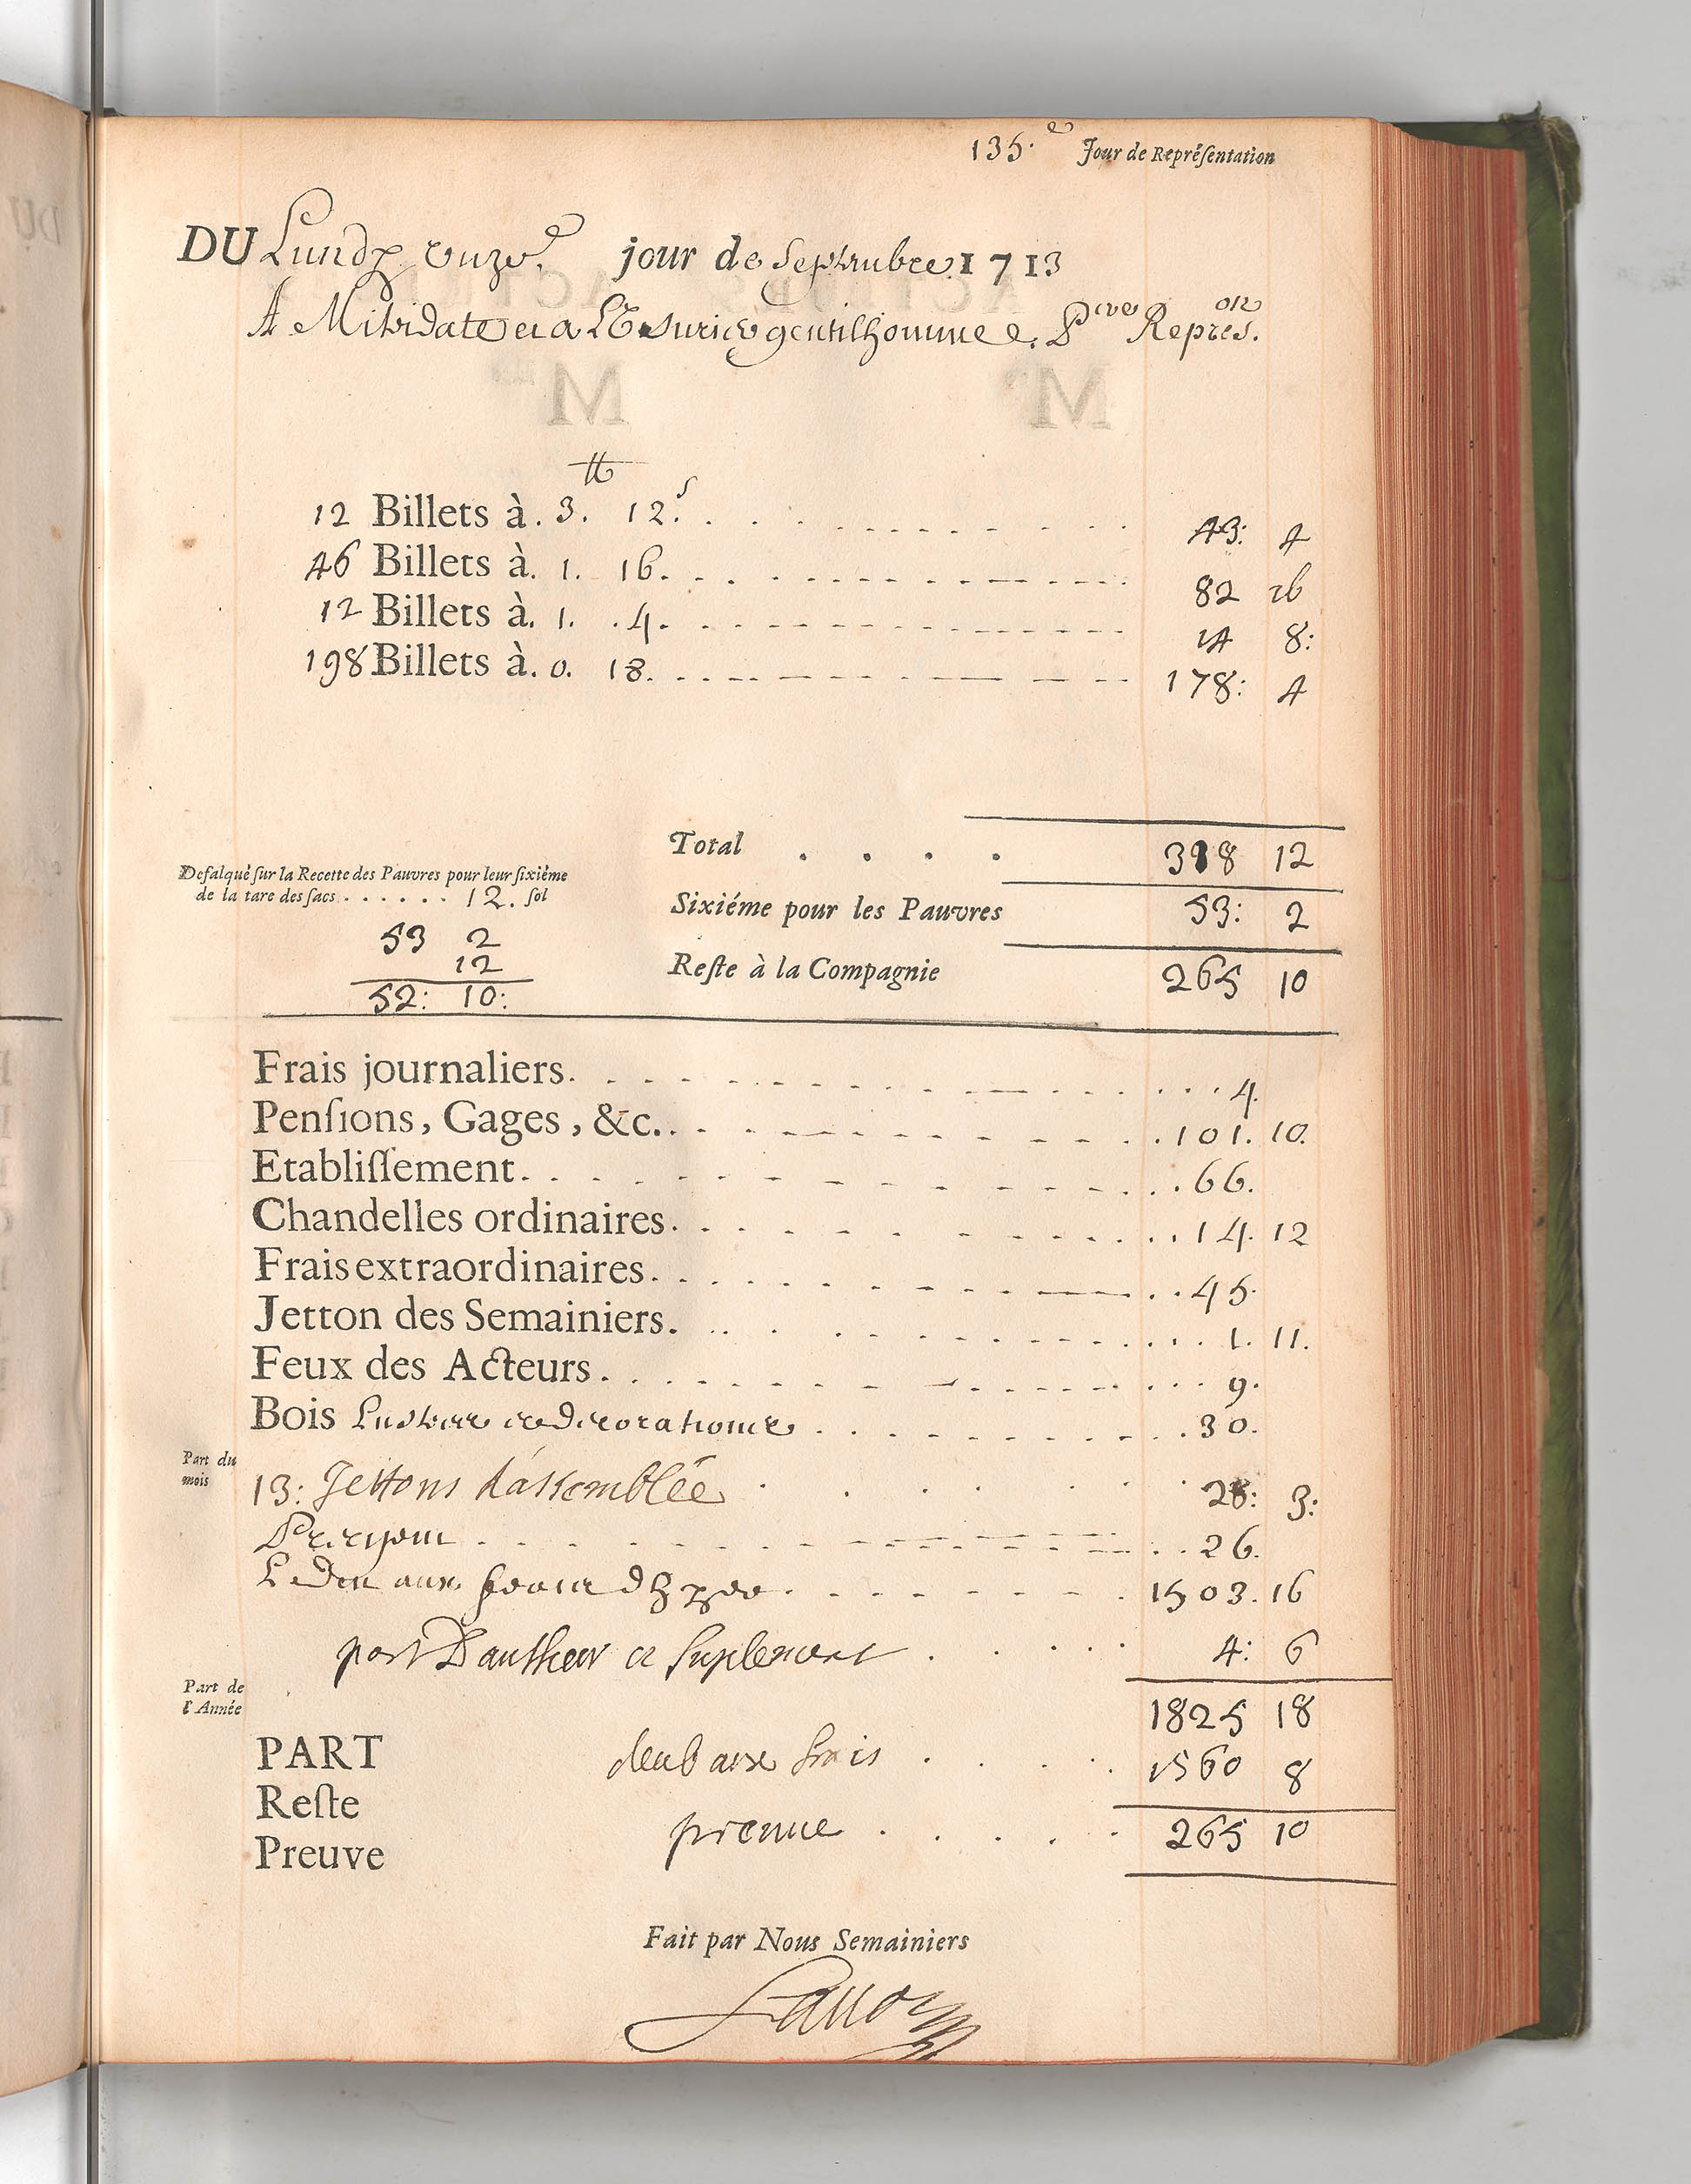 135.e Jour de Repréſentation
DU Lundy onze.e jour de Septembre 1713
A Mitridate et a L'Usurier gentilhomme 8.eme Repres.on
₶ s
12 Billets à. 3. 12. 43: 4
46 Billets à. 1. 16. 82 16
12 Billets à. 1. 4. 14 8:
198 Billets à. 0. 18. 178: 4
Total . . . . 318 12
Defalqué ſur la Recette des Pauvres pour leur ſixiéme
de la tare des ſacs . . . . . . 12. ſol
Sixiéme pour les Pauvres 53: 2
53 2
12
52: 10:
Reſte à la Compagnie 265 10
Frais journaliers. 4.
Penſions, Gages, &c. 101. 10.
Etabliſſement. 66.
Chandelles ordinaires. 14. 12
Frais extraordinaires. 45.
Jetton des Semainiers. 1. 11.
Feux des Acteurs. 9.
Bois Lustres et decorations 30.
Part du
mois
13: Jettons d'assemblée 28: 3:
26.
1503. 16
part D'autheur et suplement 4: 6
Part de
l'Année
1825 18
PART deub aux frais 1560 8
Reſte
preuve 265 10
Preuve
Fait par Nous Semainiers